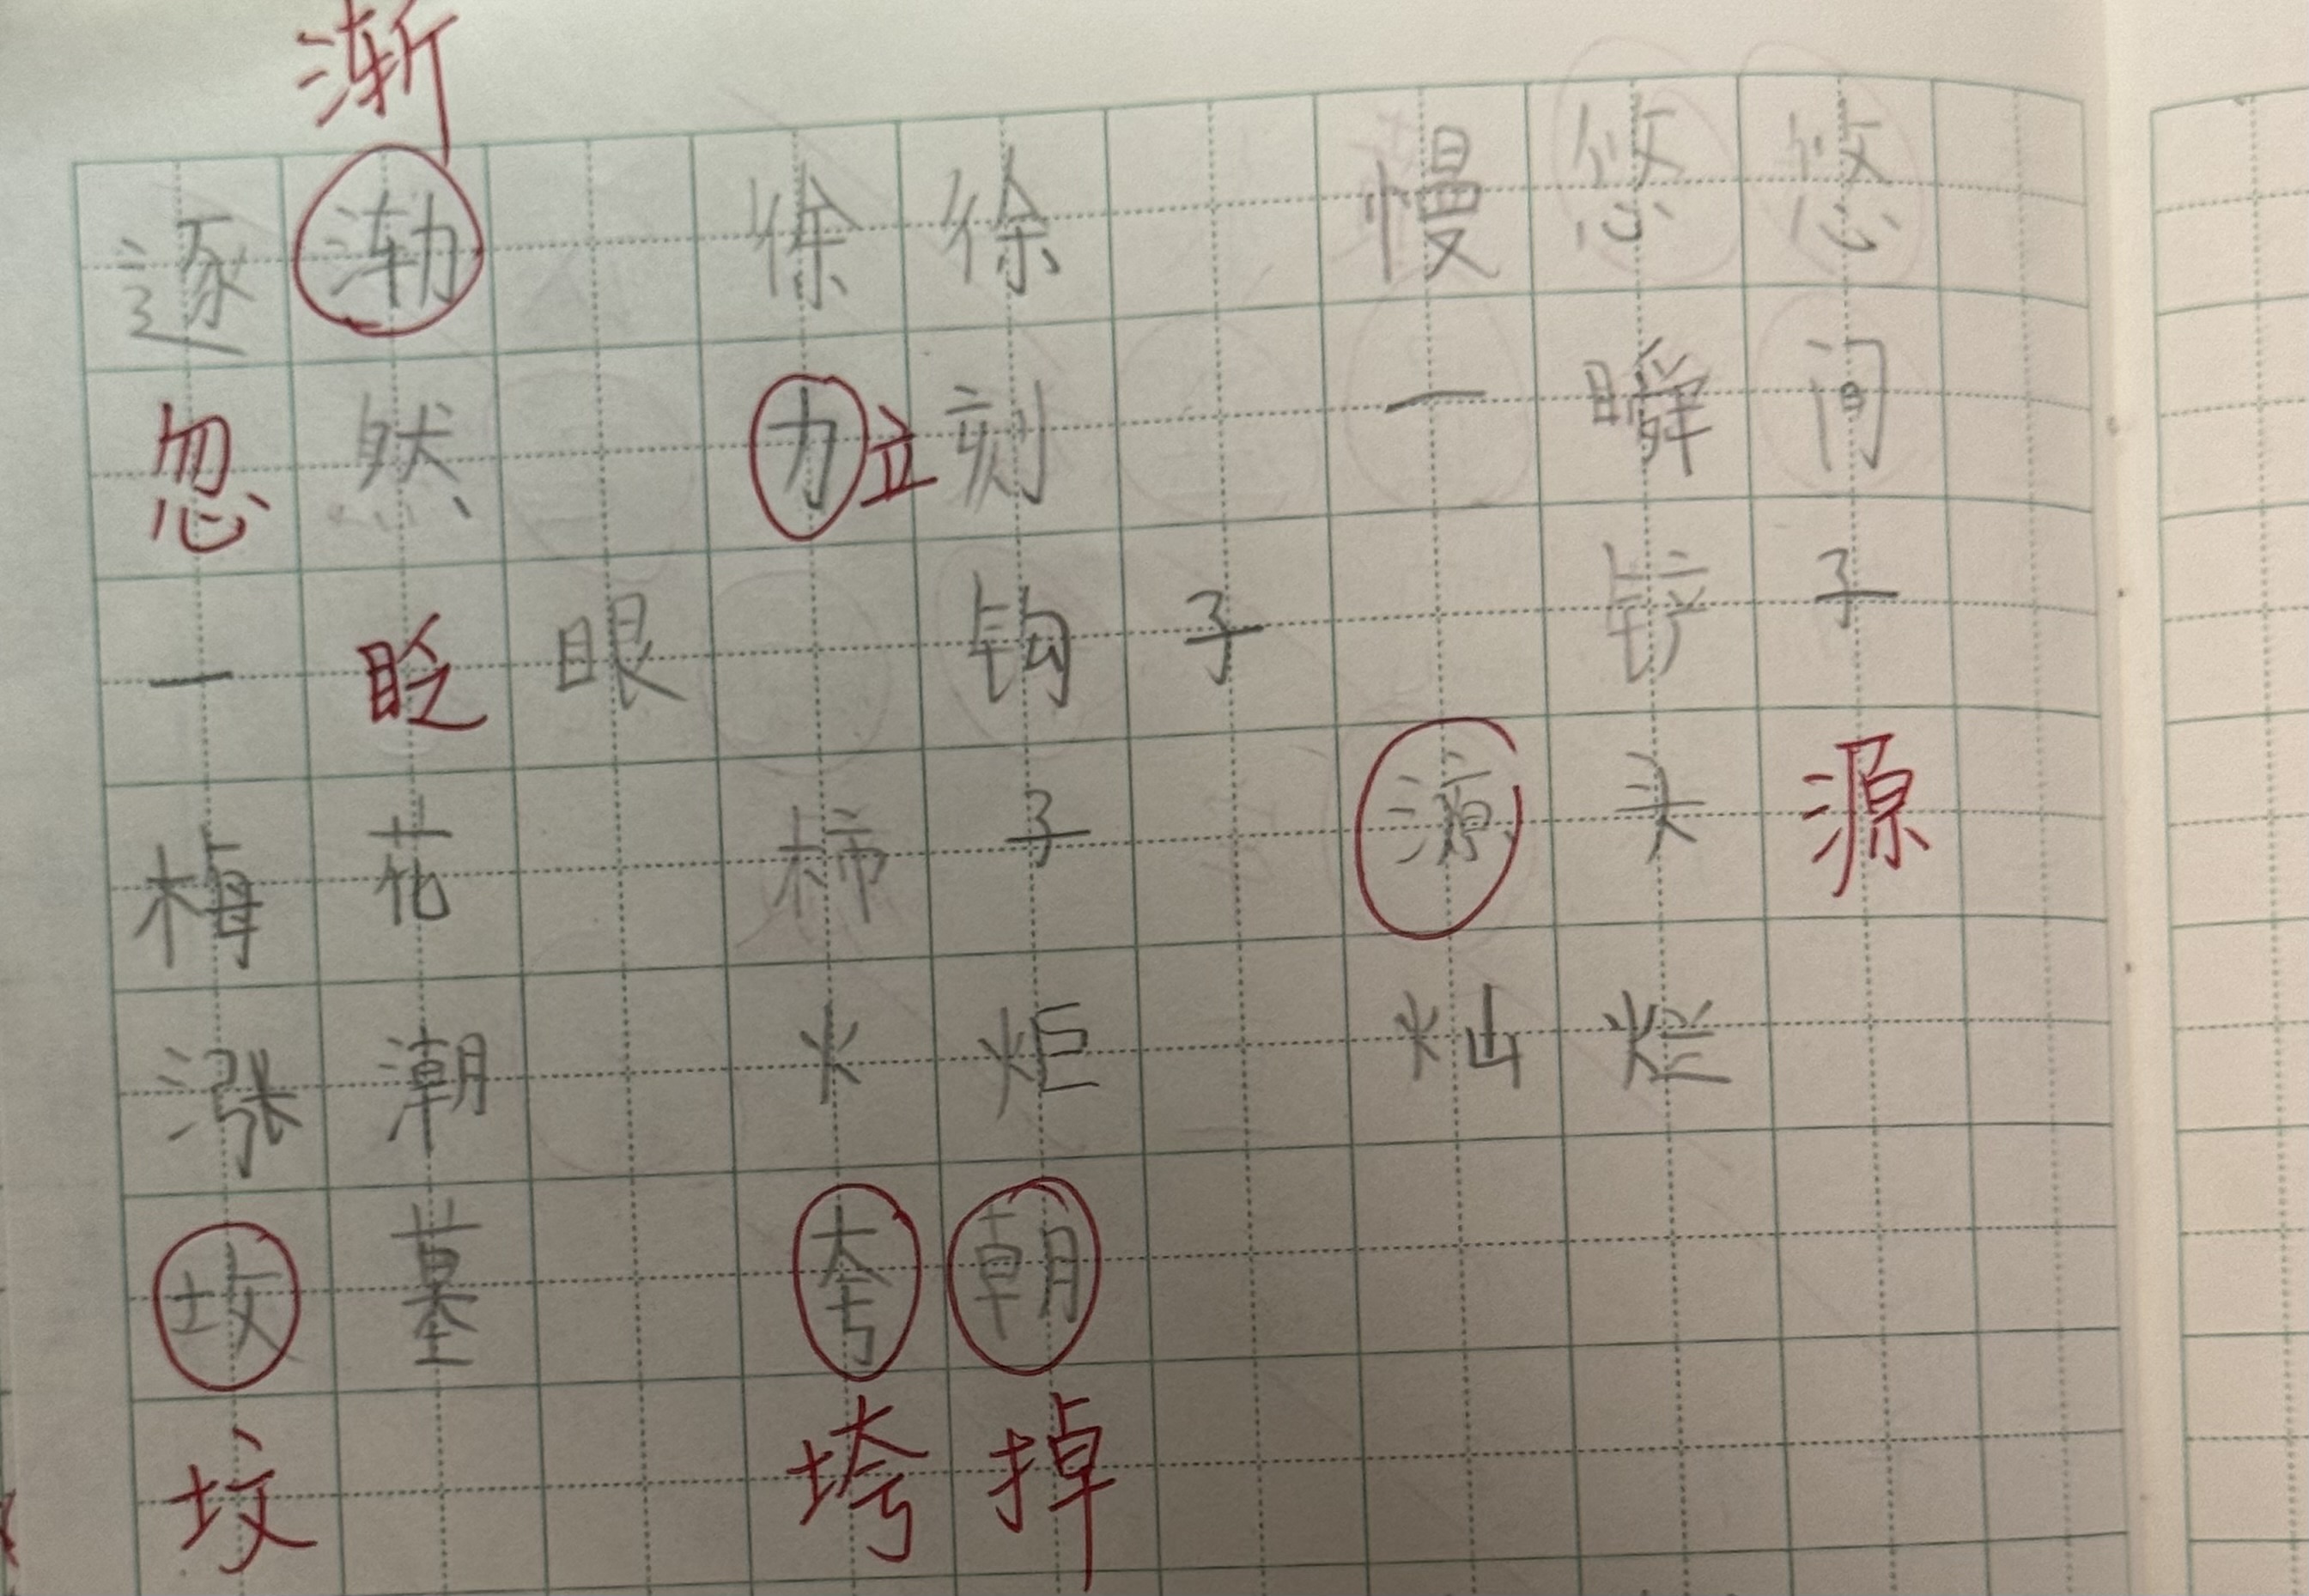 渐
逐 徐徐 慢悠悠
忽然 力立刻 一瞬间
一眨眼 钩子 铲子
梅花 柿子 头源
涨潮 火炬 灿烂
墓 夸朝
坟 垮掉